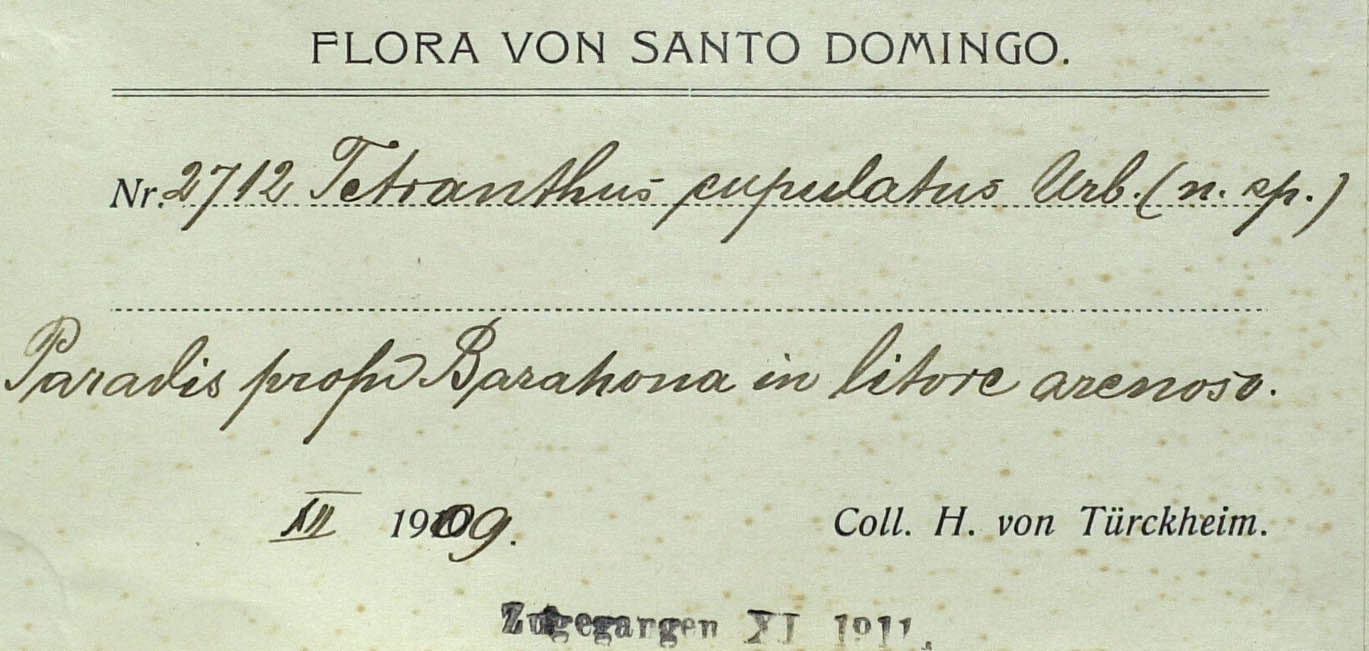 FLORA VON SANTO DOMINGO.
Nr. 2712 Tetranthus cupulatus Urb. (n. sp.)
Paradis prope Barahona in litore arenoso.
XII 1909. Coll. H. von Türckheim.
Zugegangen XI 1911.